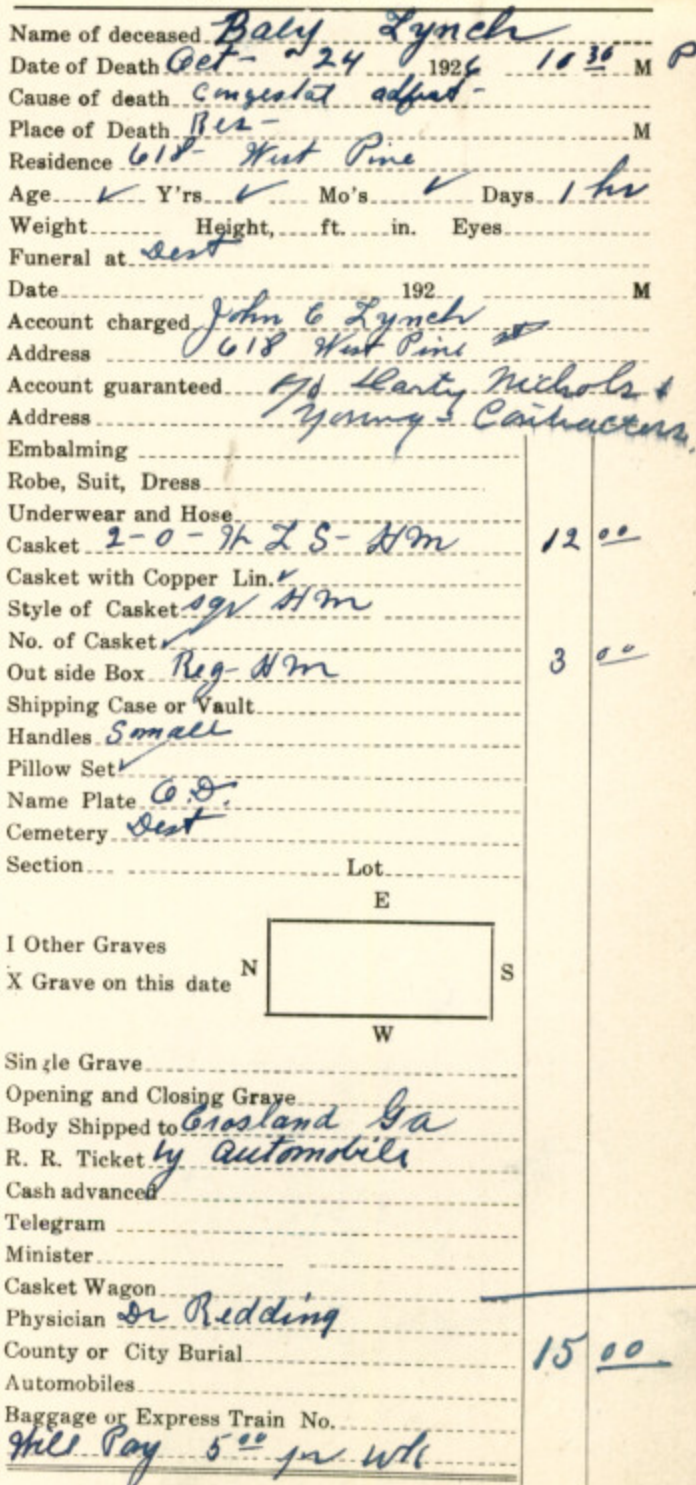 Name of deceased Baby Lynch
Date of Death Oct - 24 1926 10 30 M P
Cause of death
Place of Death Res - M
Residence 618 - West Pine
Age ✓ Y'rs ✓ Mo's ✓ Days 1 hr
Weight Height, ft. in. Eyes
Funeral at Dest
Date 192 M
Account charged John C Lynch
Address 618 West Pine st
Account guaranteed c/o Harty Nichols &
Address Young - Contractors.
Embalming
Robe, Suit, Dress
Underwear and Hose
Casket 2-0 - S - HM 12 00
Casket with Copper Lin. ✓
Style of Casket sqr HM
No. of Casket ✓
Out side Box Reg - HM 3 00
Shipping Case or Vault
Handles Small
Pillow Set ✓
Name Plate O.D.
Cemetery Dest
Section Lot
E
I Other Graves
X Grave on this date N S
W
Single Grave
Opening and Closing Grave
Body Shipped to Crosland Ga
R. R. Ticket by Automobile
Cash advanced
Telegram
Minister
Casket Wagon
Physician Dr Redding
County or City Burial 15 00
Automobiles
Baggage or Express Train No.
Will Pay 5 00 pr wk